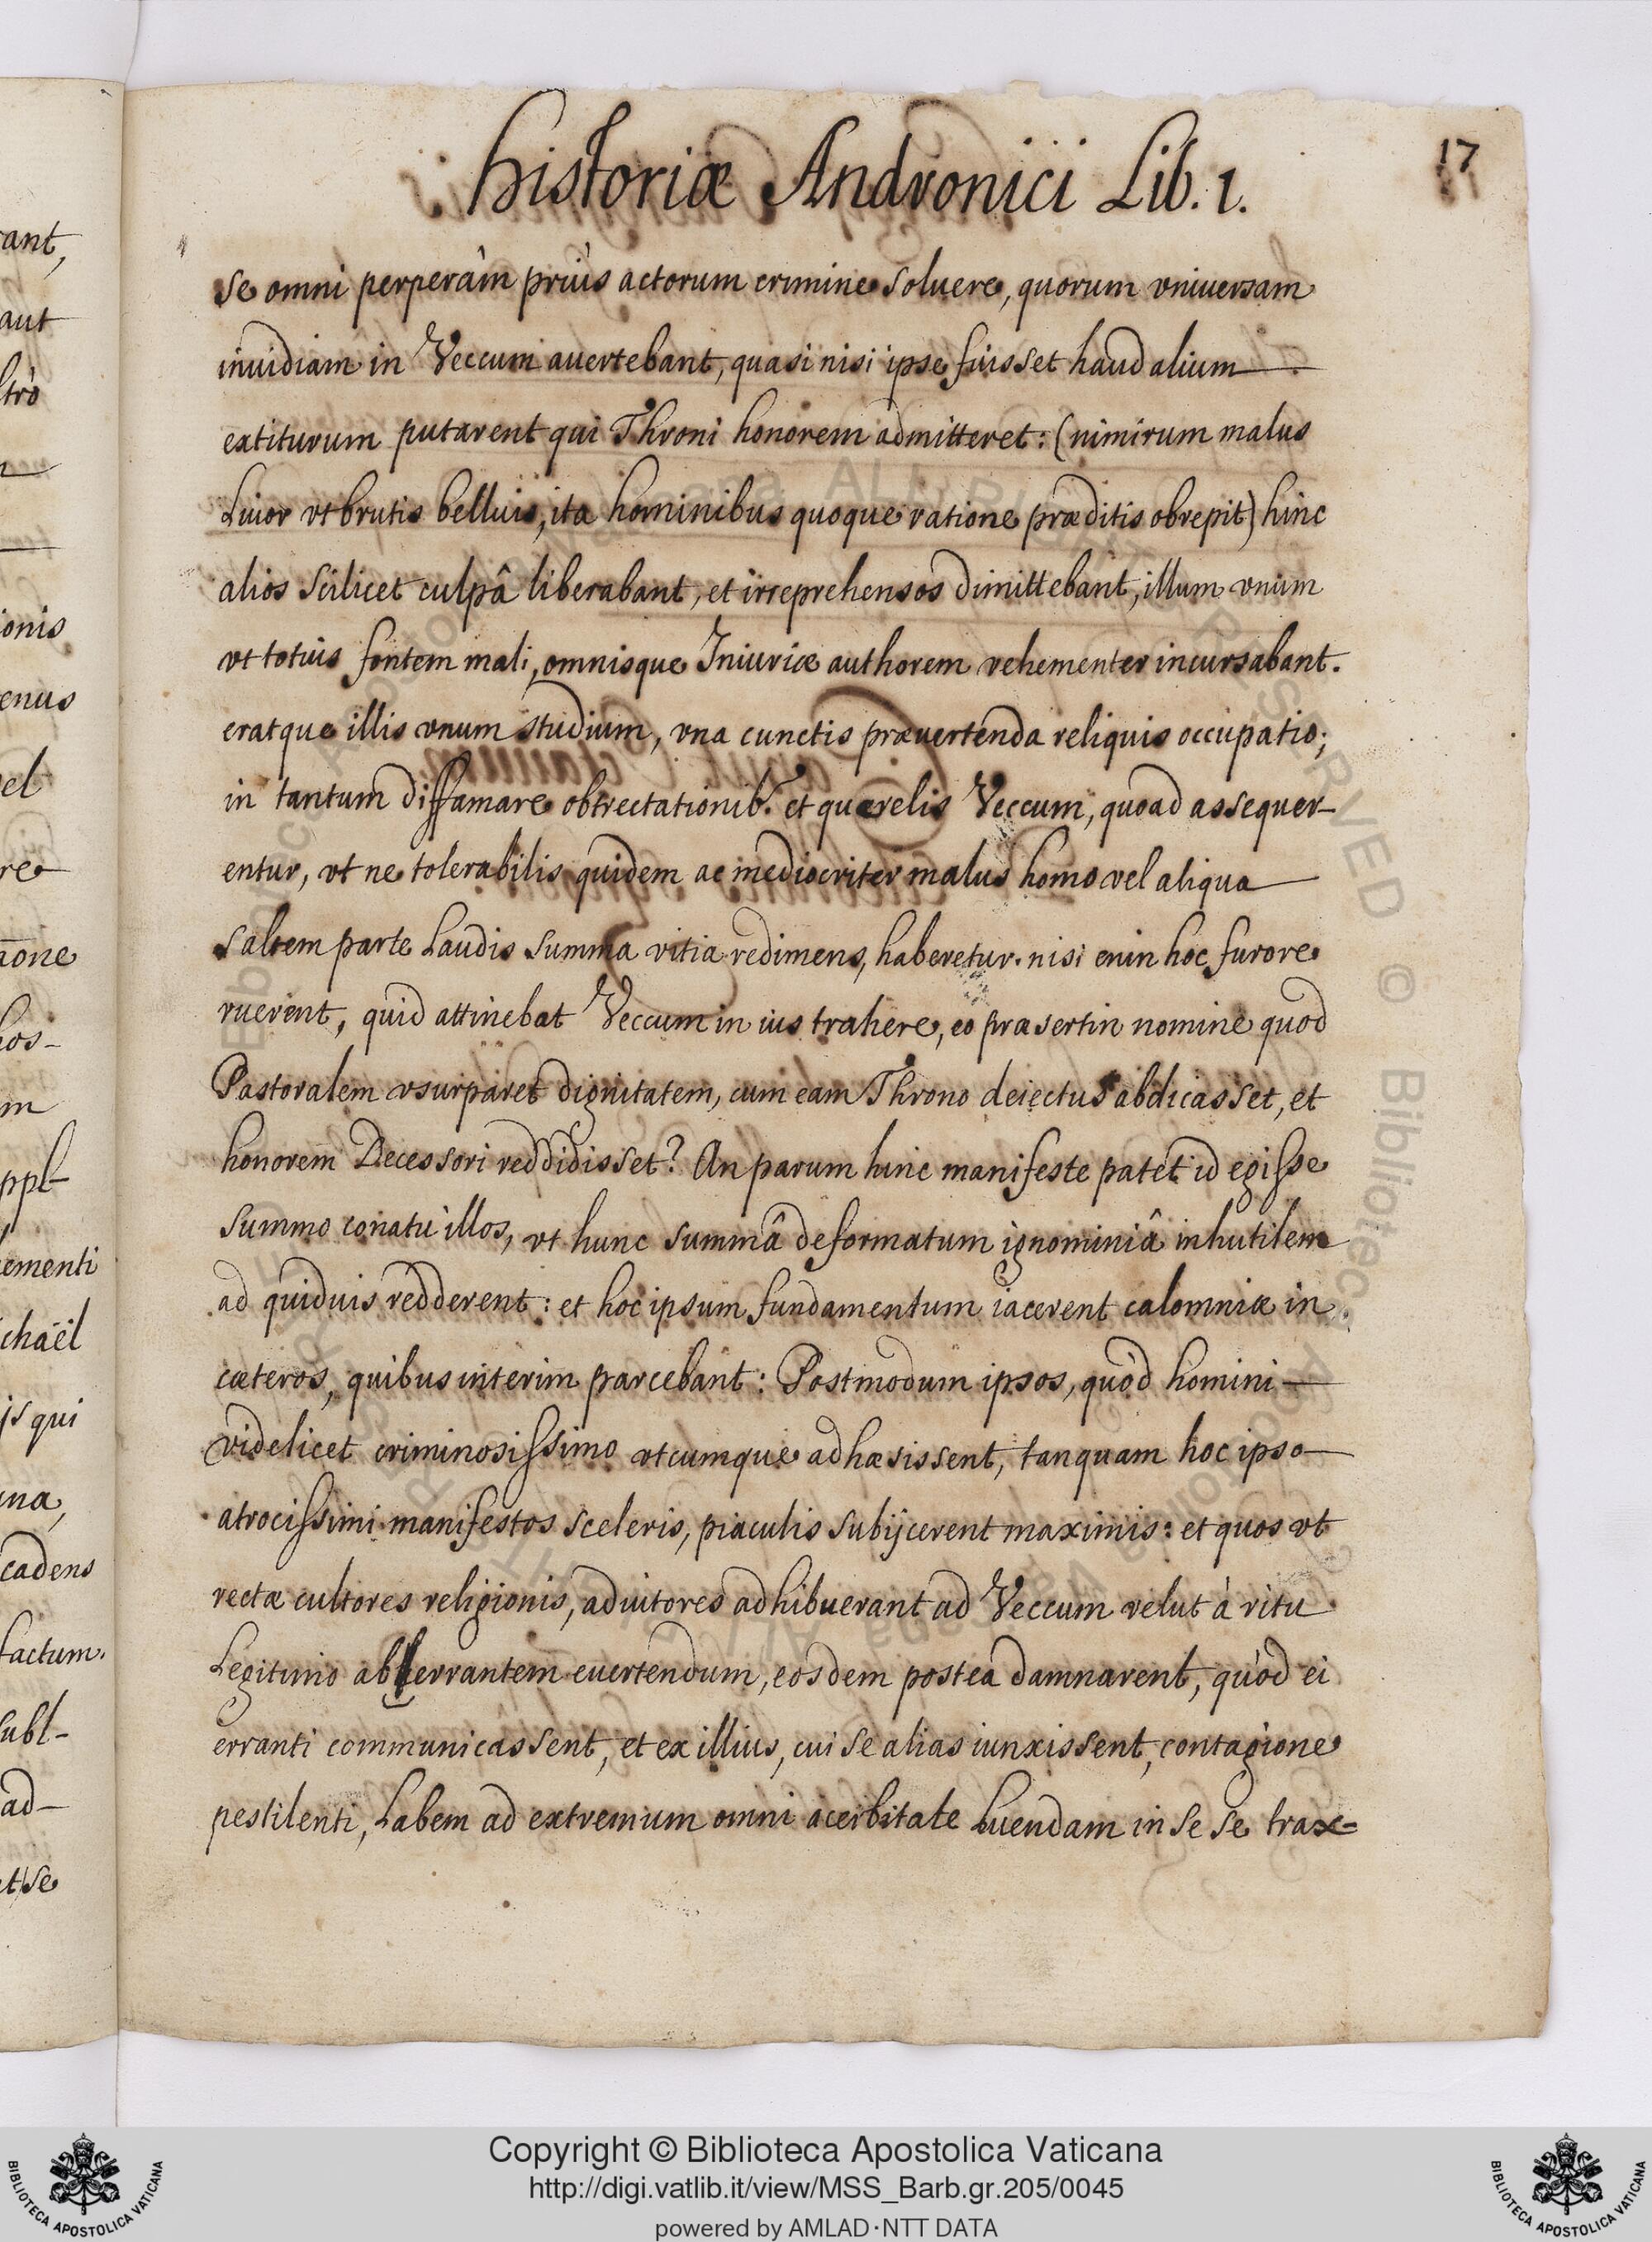 Historiæ Andronici Lib. 1.
17
se omni perperàm priùs actorum crimine soluere, quorum vniuersam
inuidiam in Veccum auertebant, quasi nisi ipse fuisset haud alium
extiturum putarent qui Throni honorem admitteret: (nimirum malus
Liuor vt brutis belluis, ita hominibus quoque ratione præditis obrepit) hinc
alios scilicet culpâ liberabant, et irreprehensos dimittebant, illum vnum
vt totius fontem mali, omnisque Iniuriæ authorem vehementer incursabant.
eratque illis vnum studium, vna cunctis præuertenda reliquis occupatio;
in tantum diffamare obtrectationib. et quærelis Veccum, quoad assequer-
entur, vt ne tolerabilis quidem ac mediocriter malus homo vel aliqua
saltem parte Laudis summa vitia redimens, haberetur. nisi enin hoc furore
ruerent, quid attinebat Veccum in ius trahere, eo præsertin nomine quod
Pastoralem vsurparet dignitatem, cum eam Throno deiectus abdicasset, et
honorem Decessori reddidisset? An parum hinc manifeste patet id egisse
summo conatu illos, vt hunc summâ deformatum ignominiâ inhutilem
ad quiduis redderent: et hoc ipsum fundamentum iacerent calomniæ in
cæteros, quibus interim parcebant: Postmodum ipsos, quòd homini
videlicet criminosissimo vtcumque adhæsissent, tanquam hoc ipso
atrocissimi manifestos sceleris, piaculis subijcerent maximis: et quos vt
rectæ cultores religionis, adiutores adhibuerant ad Veccum velut à ritu
Legitimo aberrantem euertendum, eosdem postea damnarent, quòd ei
erranti communicassent, et ex illius, cui se alias iunxissent, contagione
pestilenti, Labem ad extremum omni acerbitate Luendam in se se trax-
ant,
aut
ltrò
ionis
enus
el
re
ione
hos-
m
ppl-
ementi
chaël
js qui
una,
cadens
factum.
subl-
ad-
et se
Copyright © Biblioteca Apostolica Vaticana
http://digi.vatlib.it/view/MSS_Barb.gr.205/0045
powered by AMLAD·NTT DATA
BIBLIOTECA APOSTOLICA VATICANA
BIBLIOTECA APOSTOLICA VATICANA